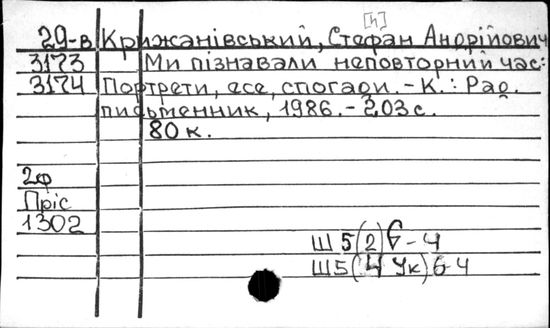 [н]
29-в Крижанівський, Стефан Андрійович
3173 Ми пізнавали неповторний час:
3174 Портрети, есе, спогади. - К.: Рад.
письменник, 1986. - 203 с.
80 к.
2ф
Пріс
1302
Ш5(2)6-4
Ш5(4Ук)6-4